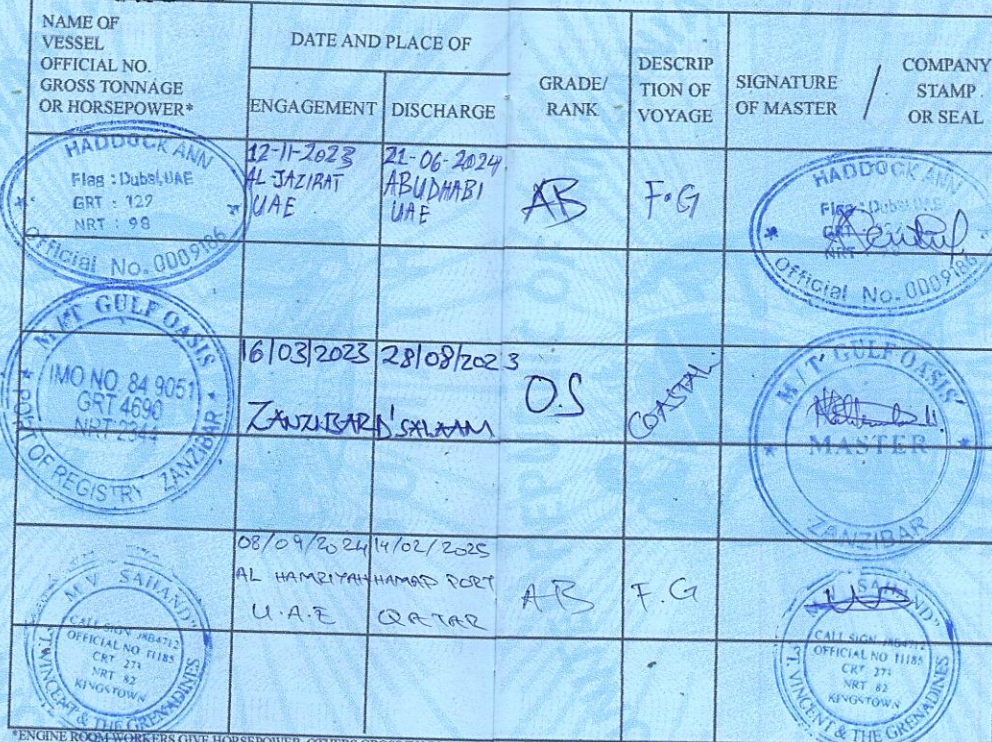 NAME OF
VESSEL
OFFICIAL NO.
GROSS TONNAGE
OR HORSEPOWER*
DATE AND PLACE OF
ENGAGEMENT
DISCHARGE
GRADE/
RANK
DESCRIP
TION OF
VOYAGE
SIGNATURE
OF MASTER
/
COMPANY
STAMP
OR SEAL
HADDOCK ANN
Flag : Dubai, UAE
GRT : 127
NRT : 98
Official No. 0009186
12-11-2023
AL-JAZIRAT
UAE
21-06-2024
ABUDHABI
UAE
AB
F.G
HADDOCK ANN
Flag : Dubai, UAE
GRT
NRT
Official No. 0009186
M/T GULF OASIS
IMO NO. 84 9051
GRT 4690
NRT 2344
PORT OF REGISTRY ZANZIBAR
16/03/2023
ZANZIBAR
28/08/2023
D'SALAAM
O.S
COASTAL
M/T GULF OASIS
MASTER
ZANZIBAR
M.V SAHAND
CALL SIGN J8B4712
OFFICIAL NO 11185
GRT 271
NRT 82
KINGSTOWN
ST. VINCENT & THE GRENADINES
08/09/2024
AL HAMRIYAH
U.A.E
14/02/2025
HAMAD PORT
QATAR
AB
F.G
SAHAND
CALL SIGN J8B4712
OFFICIAL NO 11185
GRT 271
NRT 82
KINGSTOWN
T. VINCENT & THE GRENADINES
*ENGINE ROOM WORKERS GIVE HORSEPOWER, OTHERS GROSS